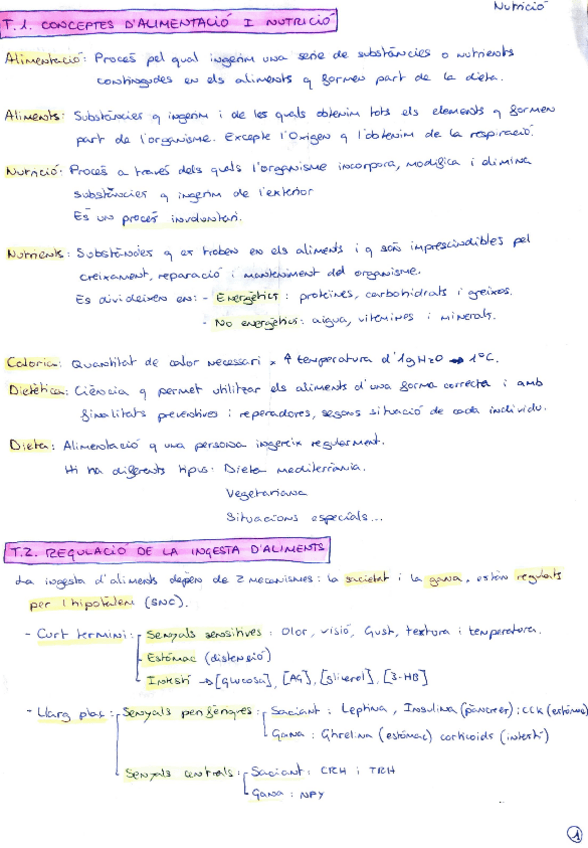 Nutrició
T.1. CONCEPTES D'ALIMENTACIÓ I NUTRICIÓ
Alimentació: Procés pel qual ingerim una serie de substàncies o nutrients
contingudes en els aliments q formen part de la dieta.
Aliments: Substàncies q ingerim i de les quals obtenim tots els elements q formen
part de l'organisme. Excepte l'Oxigen q l'obtenim de la respiració.
Nutrició: Procés a través dels quals l'organisme incorpora, modifica i elimina
substàncies q ingerim de l'exterior
És un procés involuntari.
Nutrients: Substàncies q es troben en els aliments i q són imprescindibles pel
creixament, reparació i manteniment del organisme.
Es divideixen en: - Energètics: proteïnes, carbohidrats i greixos.
- No energètics: aigua, vitamines i minerals.
Caloria: Quantitat de calor necessari x ↑ temperatura d'1g H2O → 1°C.
Dietètica: Ciència q permet utilitzar els aliments d'una forma correcta i amb
finalitats preventives i reparadores, segons situació de cada individu.
Dieta: Alimentació q una persona ingereix regularment.
Hi ha diferents tipus: Dieta mediterrània.
Vegetariana
Situacions especials...
T.2. REGULACIÓ DE LA INGESTA D'ALIMENTS
La ingesta d'aliments depèn de 2 mecanismes: la sacietat i la gana, estàn regulats
per l'hipotàlem (SNC).
- Curt termini: Senyals sensitives: Olor, visió, Gust, textura i temperatura.
Estómac (distensió)
Intestí → [glucosa], [AG], [glicerol], [3-HB]
- Llarg plaç: Senyals perifèriques: Saciant: Leptina, Insulina (pàncrees); CCK (estómac)
Gana: Ghrelina (estómac) corticoids (intestí)
Senyals centrals: Saciant: CRH i TRH
Gana: NPY
1